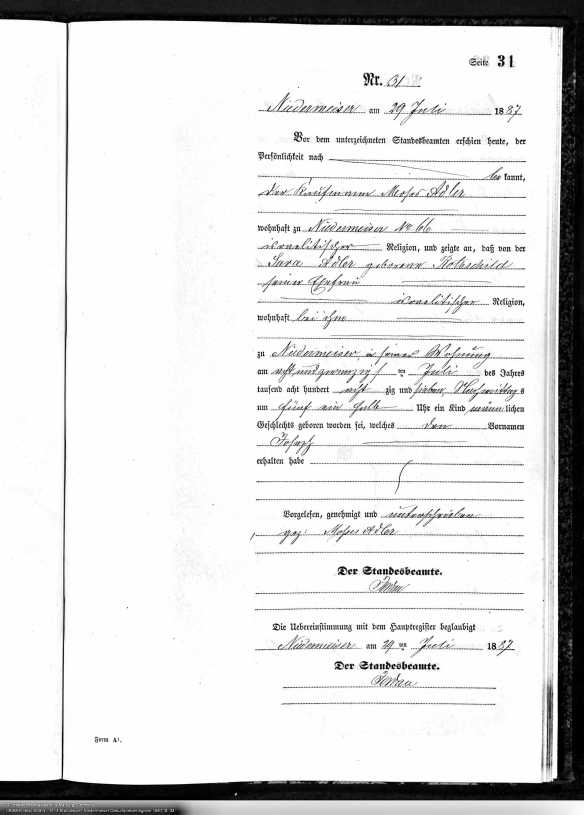 Seite 31
Nr. 31
Niedermeiser am 29 Juli 1887
Vor dem unterzeichneten Standesbeamten erschien heute, der
Persönlichkeit nach
be kannt,
der Kaufmann Moses Adler
wohnhaft zu Niedermeiser No 66
israelitischer Religion, und zeigte an, daß von der
Sara Adler geborene Rothschild
seiner Ehefrau
israelitischer Religion,
wohnhaft bei ihm
zu Niedermeiser in seiner Wohnung
am acht und zwanzigsten Juli des Jahres
tausend acht hundert acht zig und sieben Nachmittag s
um fünf ein halb Uhr ein Kind männ lichen
Geschlechts geboren worden sei, welches den Vornamen
Joseph
erhalten habe
Vorgelesen, genehmigt und unterschrieben
gez: Moses Adler
Der Standesbeamte.
Die Uebereinstimmung mit dem Hauptregister beglaubigt
Niedermeiser am 29 ten Juli 1887
Der Standesbeamte.
Form A¹.